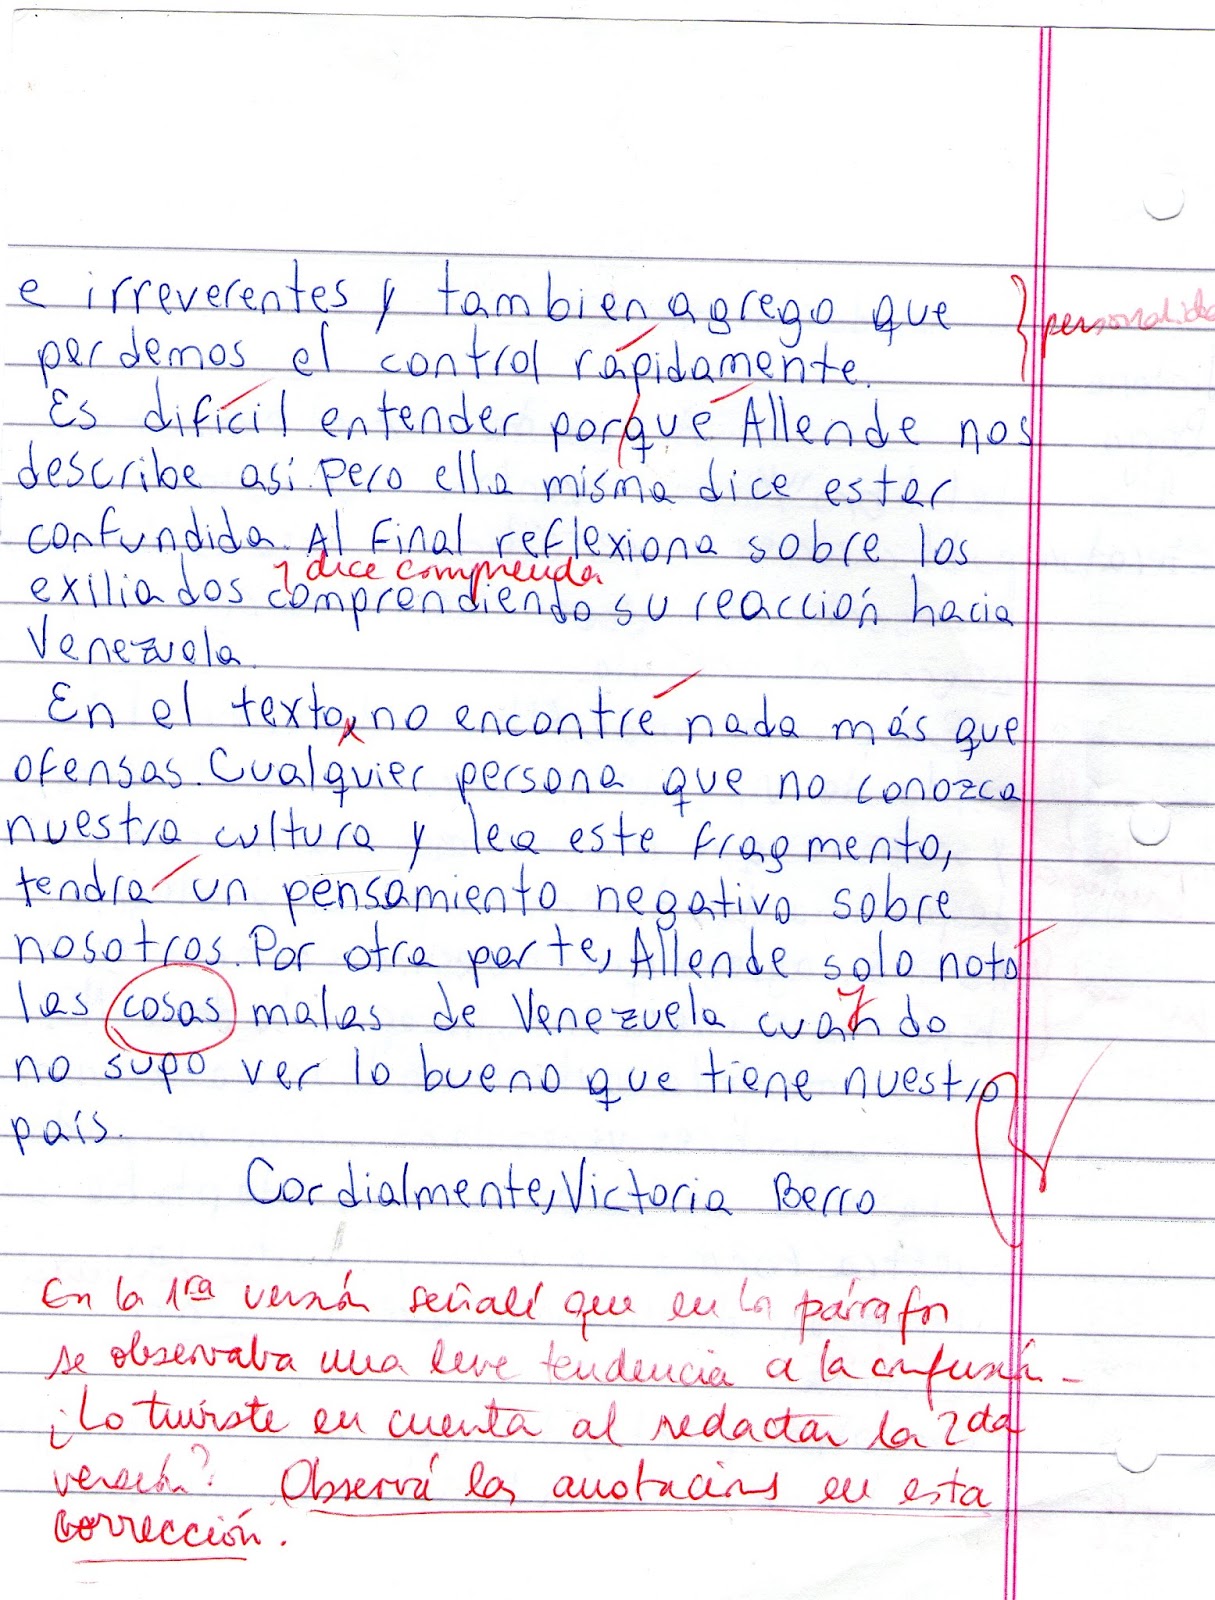 e irreverentes y tambien agrego que
perdemos el control rápidamente.
Es difícil entender por qué Allende nos
describe así. Pero ella misma dice estar
confundida. Al final reflexiona sobre los
y dice comprender
exiliados comprendiendo su reacción hacia
Venezuela.
En el texto, no encontré nada más que
ofensas. Cualquier persona que no conozca
nuestra cultura y lea este fragmento,
tendrá un pensamiento negativo sobre
nosotros. Por otra parte, Allende solo notó
las cosas malas de Venezuela cuando
no supo ver lo bueno que tiene nuestro
país.
Cordialmente, Victoria Berro
En la 1ra versión señalé que en los párrafos
se observaba una leve tendencia a la confusión.
¿Lo tuviste en cuenta al redactar la 2da
versión? Observá las anotaciones en esta
corrección.